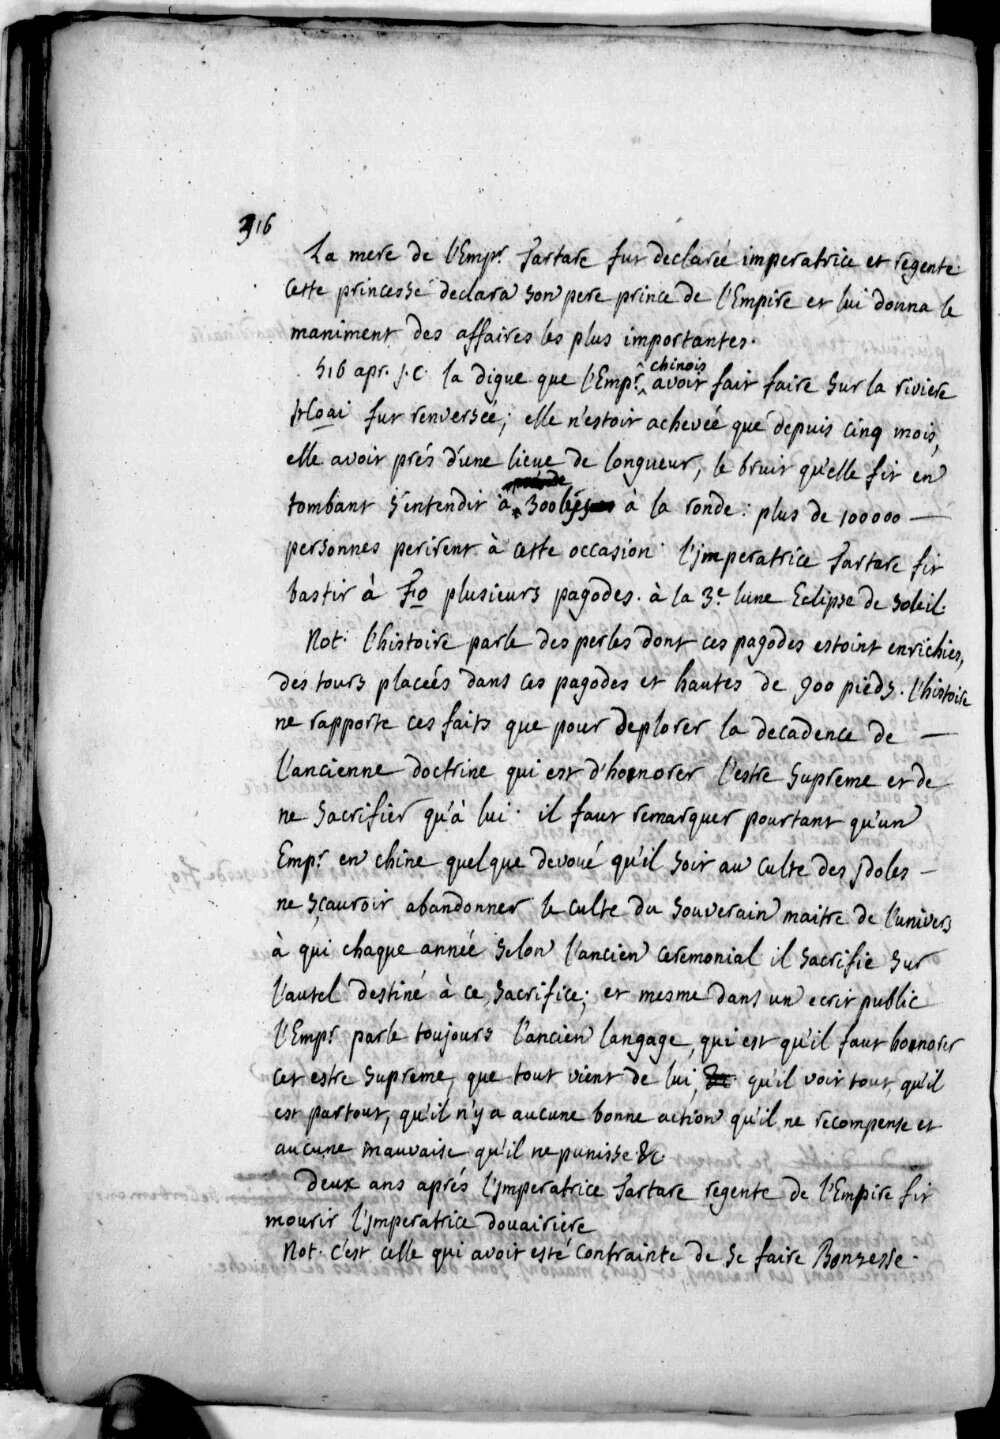 316
La mere de l'Emp.r tartare fut declareé imperatrice et regente
cette princesse declara son pere prince de l'Empire et lui donna le
maniment des affaires les plus importantes.
516 apr. J.C. la digue que l'Emp.r chinois avoit fait faire sur la riviere
hoai fut renverseé; elle n'estoit acheveé que depuis cinq mois,
elle avoit prés d'une lieue de longueur, le bruit qu'elle fit en
tombant s'entendit à 300 lys à la ronde: plus de 100000 —
personnes perirent à cette occasion. l'jmperatrice tartare fit
bastir à Fo plusieurs pagodes. à la 3.e lune Eclipse de soleil.
Not. l'histoire parle des perles dont ces pagodes estoint enrichies,
des tours placeés dans ces pagodes et hautes de 900 pieds. l'histoire
ne rapporte ces faits que pour deplorer la decadence de —
l'ancienne doctrine qui est d'honorer l'estre supreme et de
ne sacrifier qu'à lui. il faut remarquer pourtant qu'un
Emp.r en chine quelque devoué qu'il soit au culte des jdoles —
ne sçauroit abandonner le culte du souverain maitre de l'univers
à qui chaque anneé selon l'ancien ceremonial il sacrifie sur
l'autel destiné à ce sacrifice; et mesme dans un ecrit public
l'Emp.r parle toujours l'ancien langage, qui est qu'il faut honorer
cet estre supreme, que tout vient de lui, &c. qu'il voit tout, qu'il
est partout, qu'il n'y a aucune bonne action qu'il ne recompense et
aucune mauvaise qu'il ne punisse &c.
Deux ans aprés l'jmperatrice tartare regente de l'Empire fit
mourir l'jmperatrice douairiere
Not. c'est celle qui avoit esté contrainte de se faire Bonzesse.